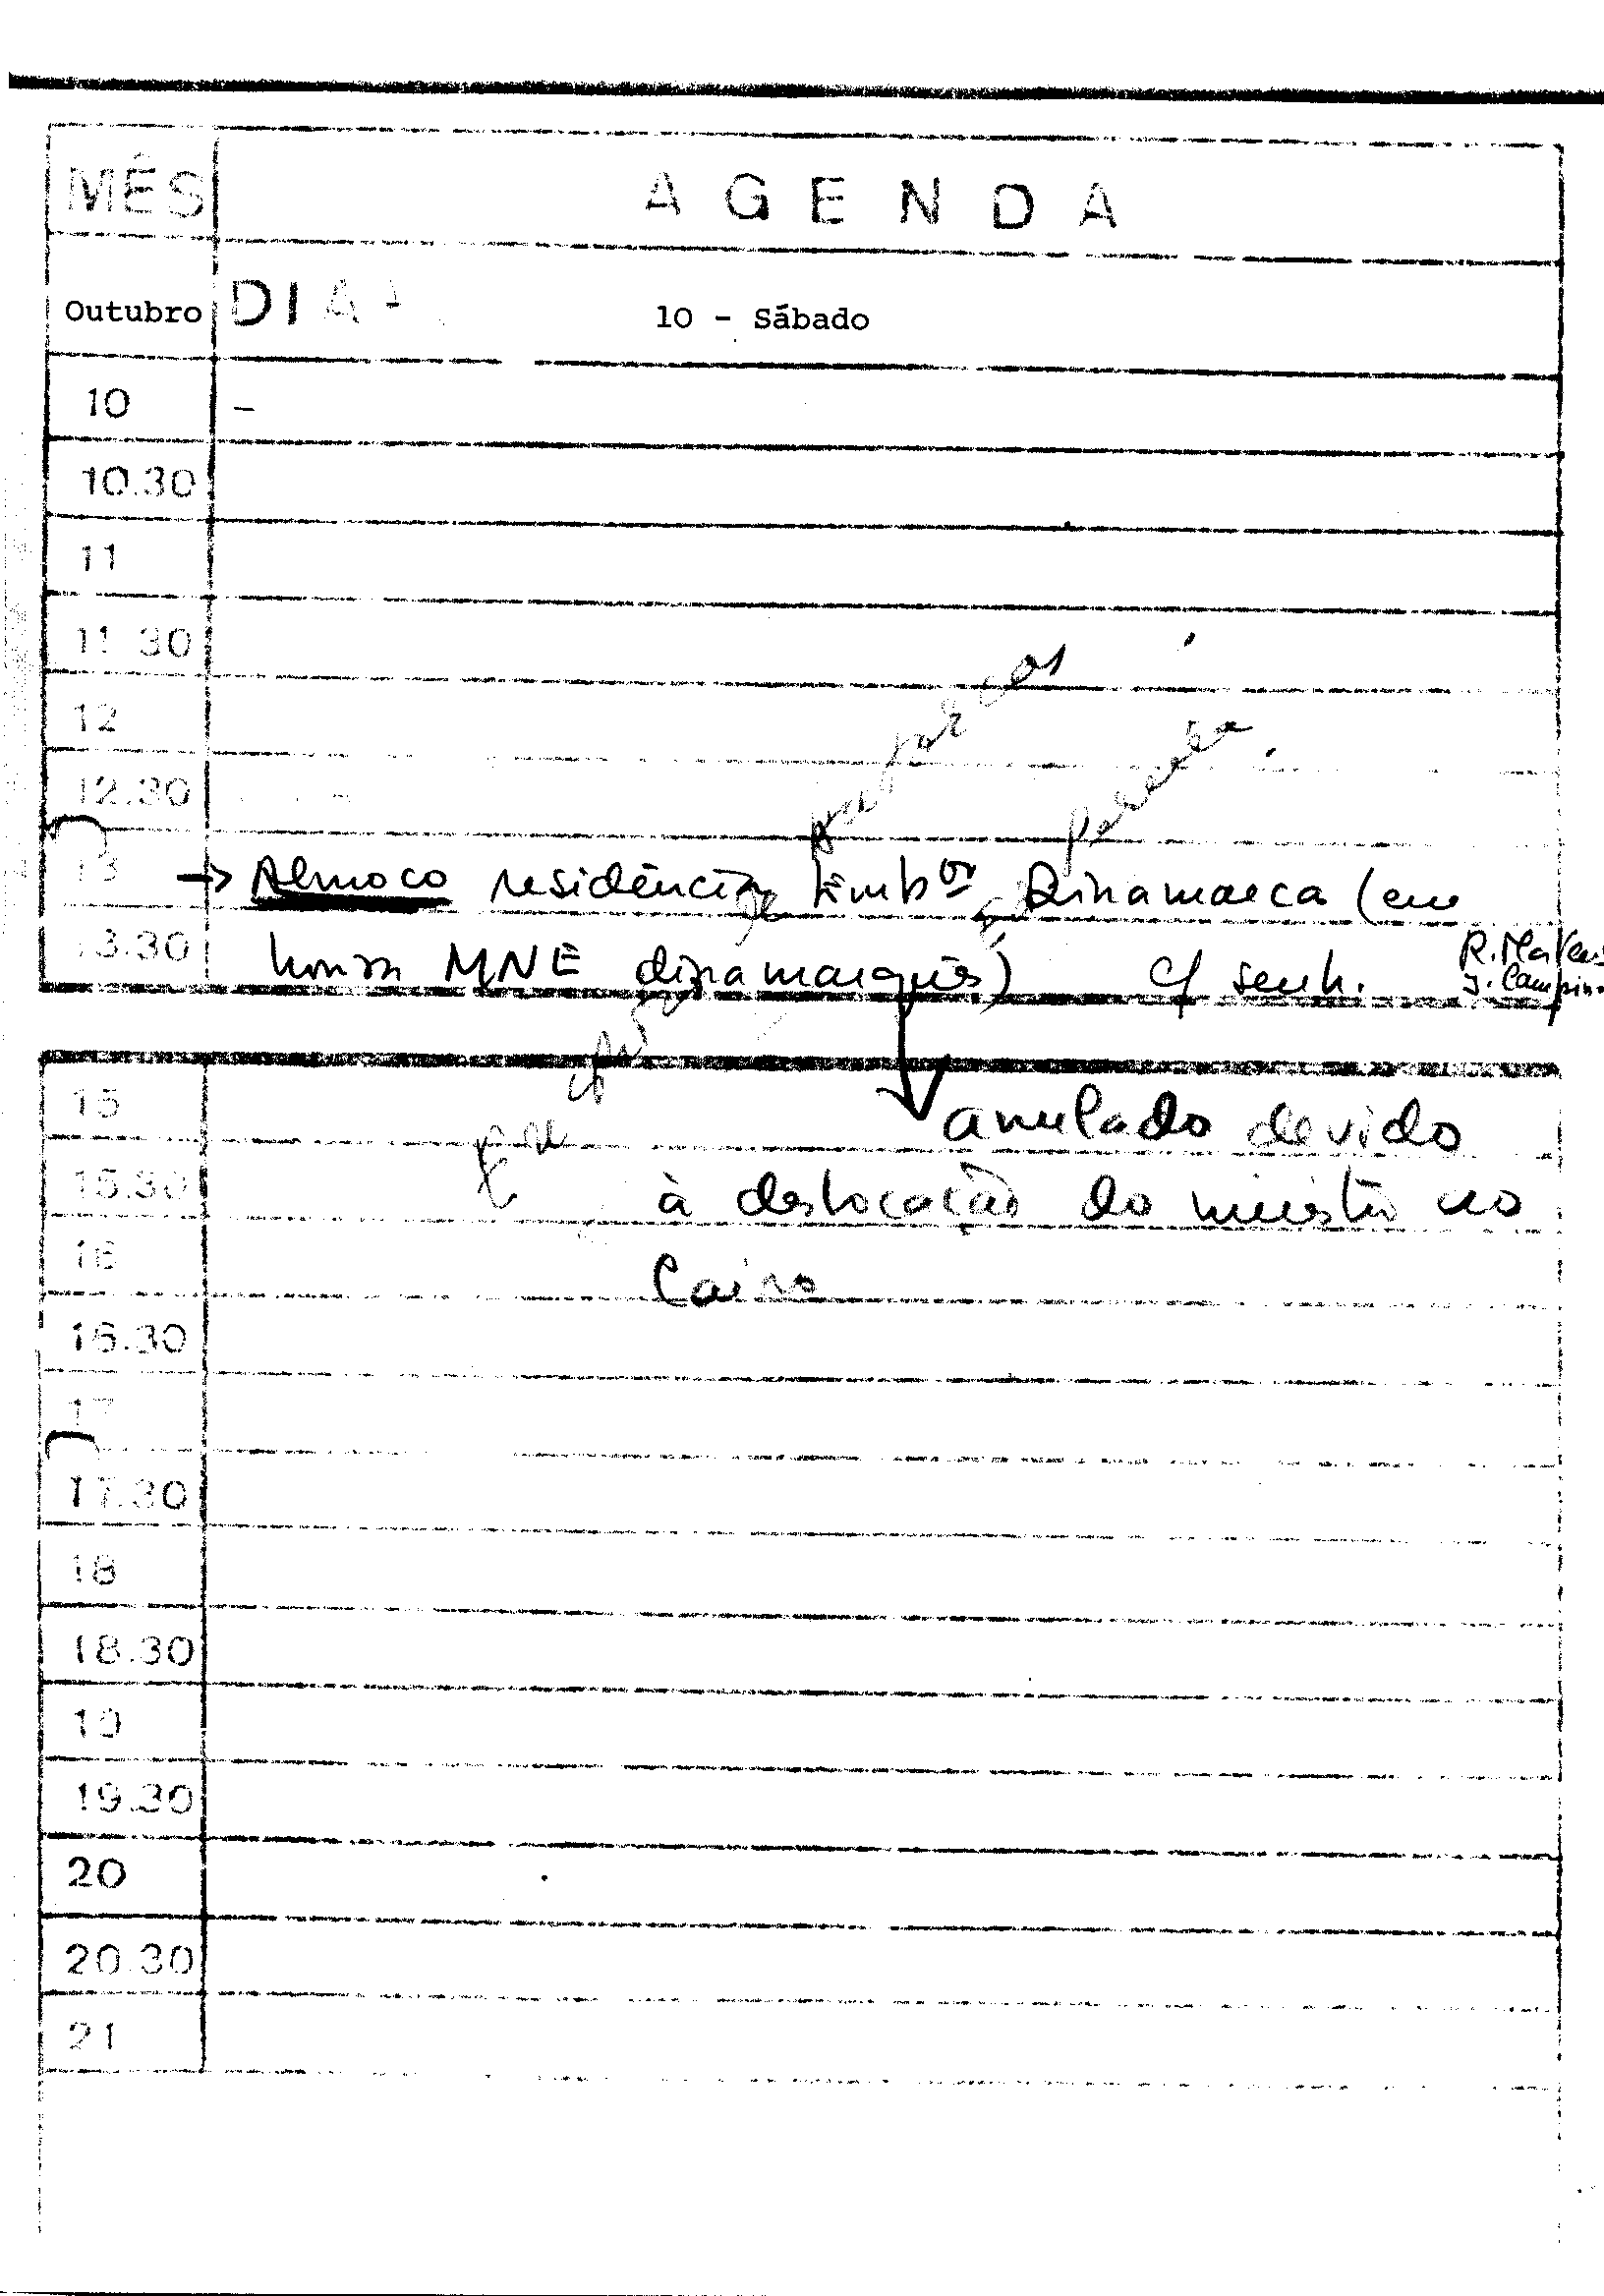 MÊS
A G E N D A
Outubro
DIA
10 - Sábado
10
-
10.30
11
11 30
12
12.30
13
→ Almoço residência Embor Dinamarca (em
13.30
honra MNE dinamarquês) c/ senh.
R. Mateus
J. Campin
15
anulado devido
15.30
à deslocação do ministro ao
16
Cairo
16.30
17
17.30
18
18.30
19
19.30
20
20.30
21